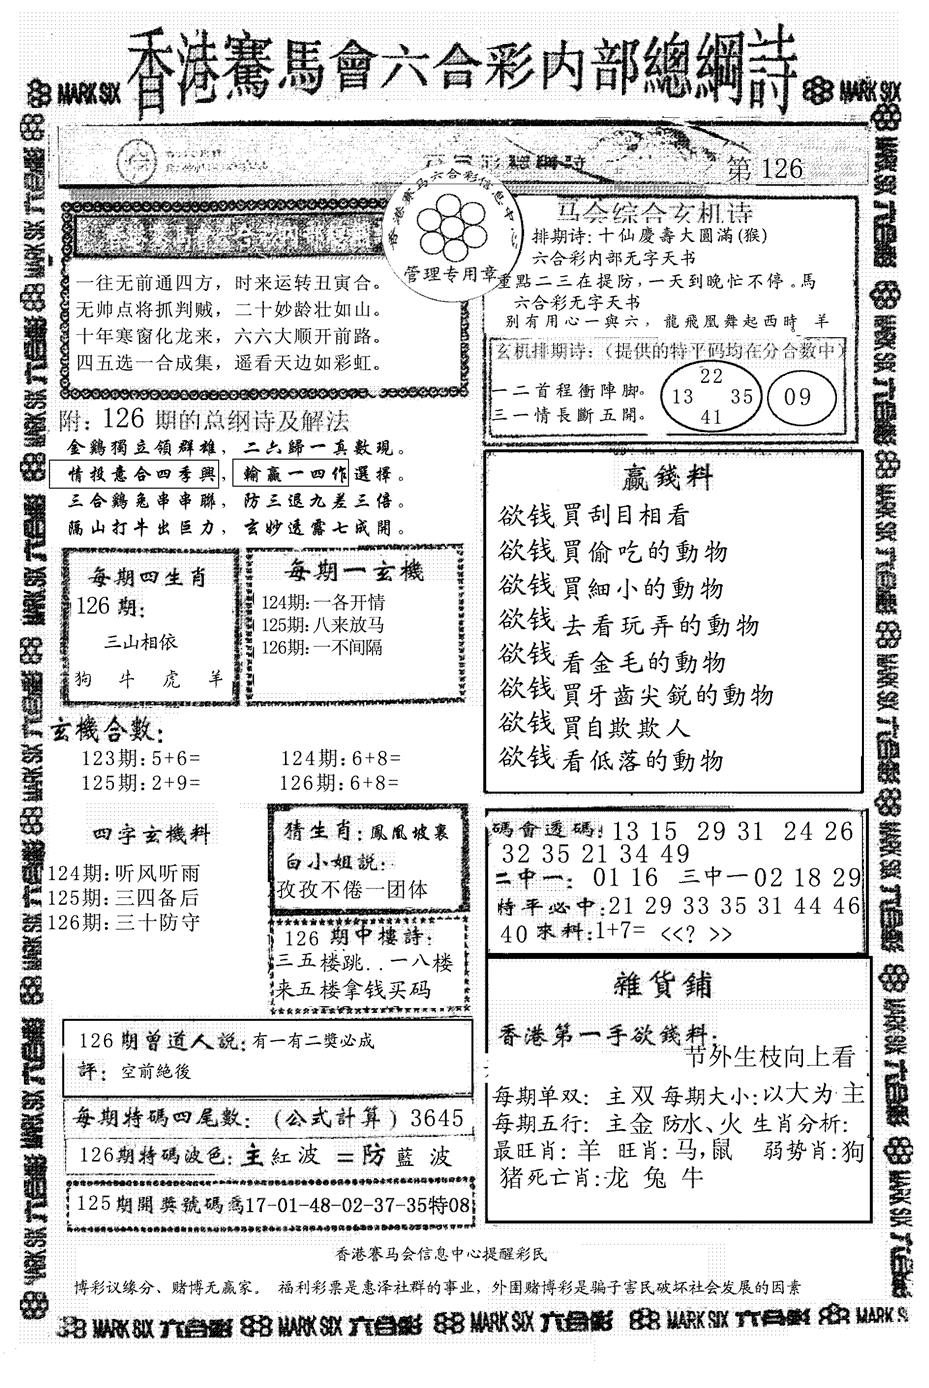 香港賽馬會六合彩内部總綱詩
MARK SIX
MARK SIX
第 126
香港赛马六合彩信息中
管理专用章
一往无前通四方，时来运转丑寅合。
无帅点将抓判贼，二十妙龄壮如山。
十年寒窗化龙来，六六大顺开前路。
四五选一合成集，遥看天边如彩虹。
马会综合玄机诗
排期诗：十仙慶壽大圆滿(猴)
六合彩内部无字天书
重點二三在提防，一天到晚忙不停。馬
六合彩无字天书
别有用心一與六，龍飛凰舞起西時 羊
玄机排期诗：（提供的特平码均在分合数中）
一二首程衝陣脚。
三一情長斷五開。
22
13 35
41
09
附：126 期的总纲诗及解法
金鷄獨立領群雄，二六歸一真數現。
情投意合四季興，輸贏一四作選擇。
三合鷄兔串串聯，防三退九差三倍。
隔山打牛出巨力，玄妙透露七成開。
每期四生肖
126 期：
三山相依
狗 牛 虎 羊
每期一玄機
124期：一各开情
125期：八来放马
126期：一不间隔
玄機合數：
123期：5+6= 124期：6+8=
125期：2+9= 126期：6+8=
四字玄機料
124期：听风听雨
125期：三四备后
126期：三十防守
猜生肖：鳳凰坡裏
白小姐説：
孜孜不倦一团体
126 期中樓詩：
三五楼跳..一八楼
来五楼拿钱买码
赢錢料
欲钱買刮目相看
欲钱買偷吃的動物
欲钱買細小的動物
欲钱去看玩弄的動物
欲钱看金毛的動物
欲钱買牙齒尖鋭的動物
欲钱買自欺欺人
欲钱看低落的動物
碼會透碼：13 15 29 31 24 26
32 35 21 34 49
二中一：01 16 三中一02 18 29
特平必中：21 29 33 35 31 44 46
40 來料：1+7= <<? >>
雜貨鋪
香港第一手欲錢料：
节外生枝向上看
每期单双：主双 每期大小：以大为主
每期五行：主金 防水、火 生肖分析：
最旺肖：羊 旺肖：马，鼠 弱势肖：狗
猪 死亡肖：龙 兔 牛
126期曾道人説：有一有二獎必成
評：空前絶後
每期特碼四尾數：（公式計算）3645
126期特碼波色：主紅波 =防藍波
125期開獎號碼爲17-01-48-02-37-35特08
香港賽马会信息中心提醒彩民
博彩议缘分、赌博无赢家。 福利彩票是惠泽社群的事业，外围赌博彩是骗子害民破坏社会发展的因素
MARK SIX 六合彩 MARK SIX 六合彩 MARK SIX 六合彩 MARK SIX 六合彩 MARK SIX